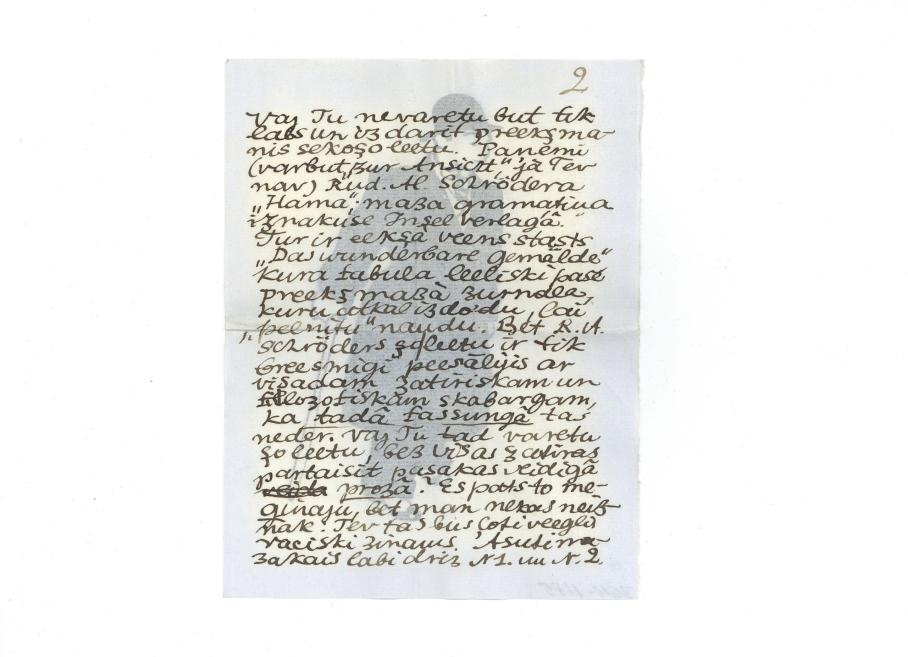 2
Vaj Tu nevaretu but tik
labs un izdarit preeksma-
nis sekoşo leetu. Panemi
(varbut „zur Ansicht“ ja Tev
nav) Rud. Al. Schrödera
„Hama“. maza gramatiņa
iznakuse Inselverlagâ.
Tur ir eekşâ veens stasts
„Das wunderbare Gemälde“
kura fabula leeliski pase
preekş mazâ zurnala,
kuru atkal izdodu, lai
„pelnitu“ naudu. Bet R. A.
Schröders şo leetu ir tik
breesmigi peesâlijis ar
visadam zatiriskam un
filozofiskam skabargam,
ka tadâ fassungâ tas
neder. Vaj Tu tad varetu
şo leetu, bez visas zatiras
partaisit pasakas veidigâ
prozâ. Es pats to me-
ginaju, bet man nekas neiz-
nak. Tev tas bus ļoti veegli
vaciski zinams.
zakais labi driz N 1. un N. 2.